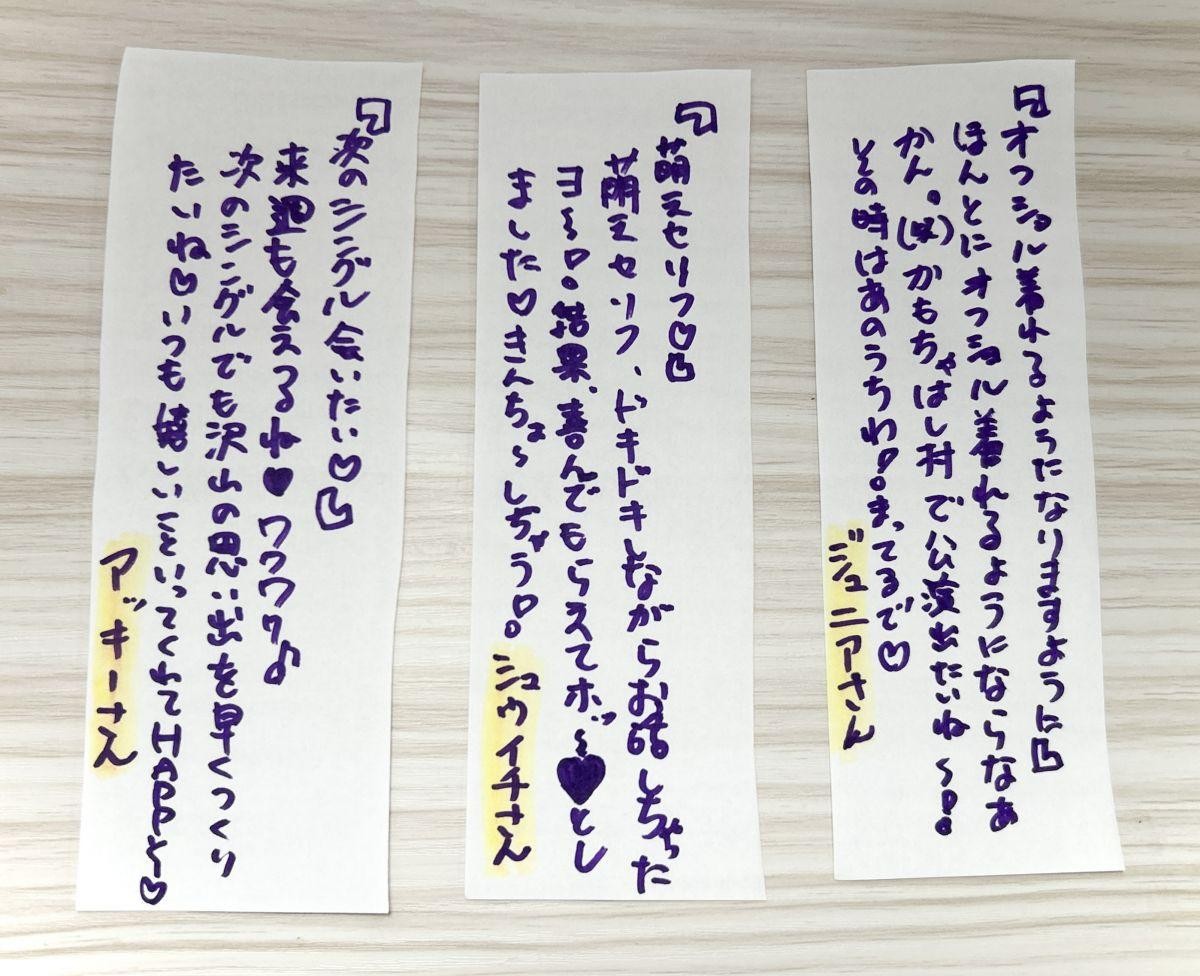 「オフショル着れるようになりますように」
ほんとにオフショル着れるようにならなあ
かん。(は)かもちゃはし村で公演出たいね〜!!
その時はあのうちわ!!まってるで♡
ジュニアさん
「萌えセリフ♡」
萌えセリフ、ドキドキしながらお話しちゃった
ヨ〜!!結果、喜んでもらえてホッ〜♥とし
ました♡きんちょ〜しちゃう!!
シュウイチさん
「次のシングル会いたい♡」
来週も会えるね♥ワクワク♪
次のシングルでも沢山の思い出を早くつくり
たいね♡いつも嬉しいこといってくれてHAPPY♡
アッキーさん